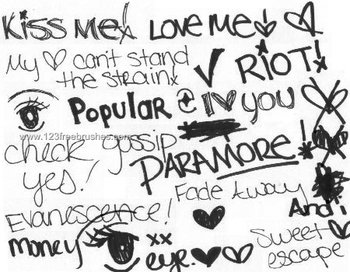 Kiss Me! Love Me
My ♡ can't stand the strain x
✓ RIOT!
Popular + I ♡ you
www.123freebrushes.com
check yes!
gossip
PARAMORE!
Fade Away
Evanescence!
And
money
xx
eye.
Sweet escape